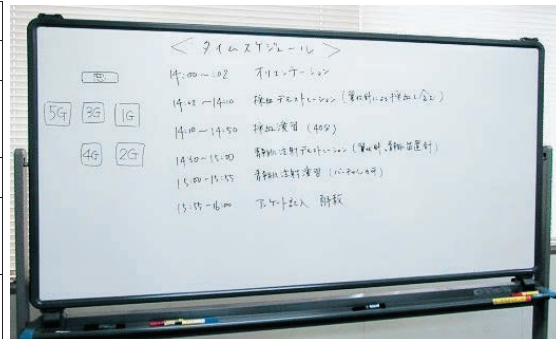 ＜ タイムスケジュール ＞
14:00～:02 オリエンテーション
14:02～14:10 採血デモストレーション
14:10～14:50 採血演習 (40分)
14:50～15:00 静脈注射デモストレーション (翼状針、静脈留置針)
15:00～15:55 静脈注射演習
15:55～16:00 アンケート記入 解散
5G 3G 1G
4G 2G